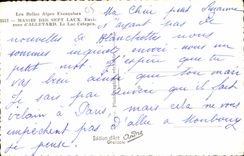 Les Belles Alpes Françaises
MASSIF DES SEPT LAUX. Envi-
rons D'ALLEVARD. Le Lac Cotepen
Ma Chère petite
ayant pas de
nouvelles de Blanchette nous
sommes inquiets envoi-nous un
petit mot. J'espère que tu
vas bien ainsi que ton mari
Je sais pas
à Paris, mais cela ne vous
empêchent pas d'aller à
je pense.
Edition d'Art André
Grenoble